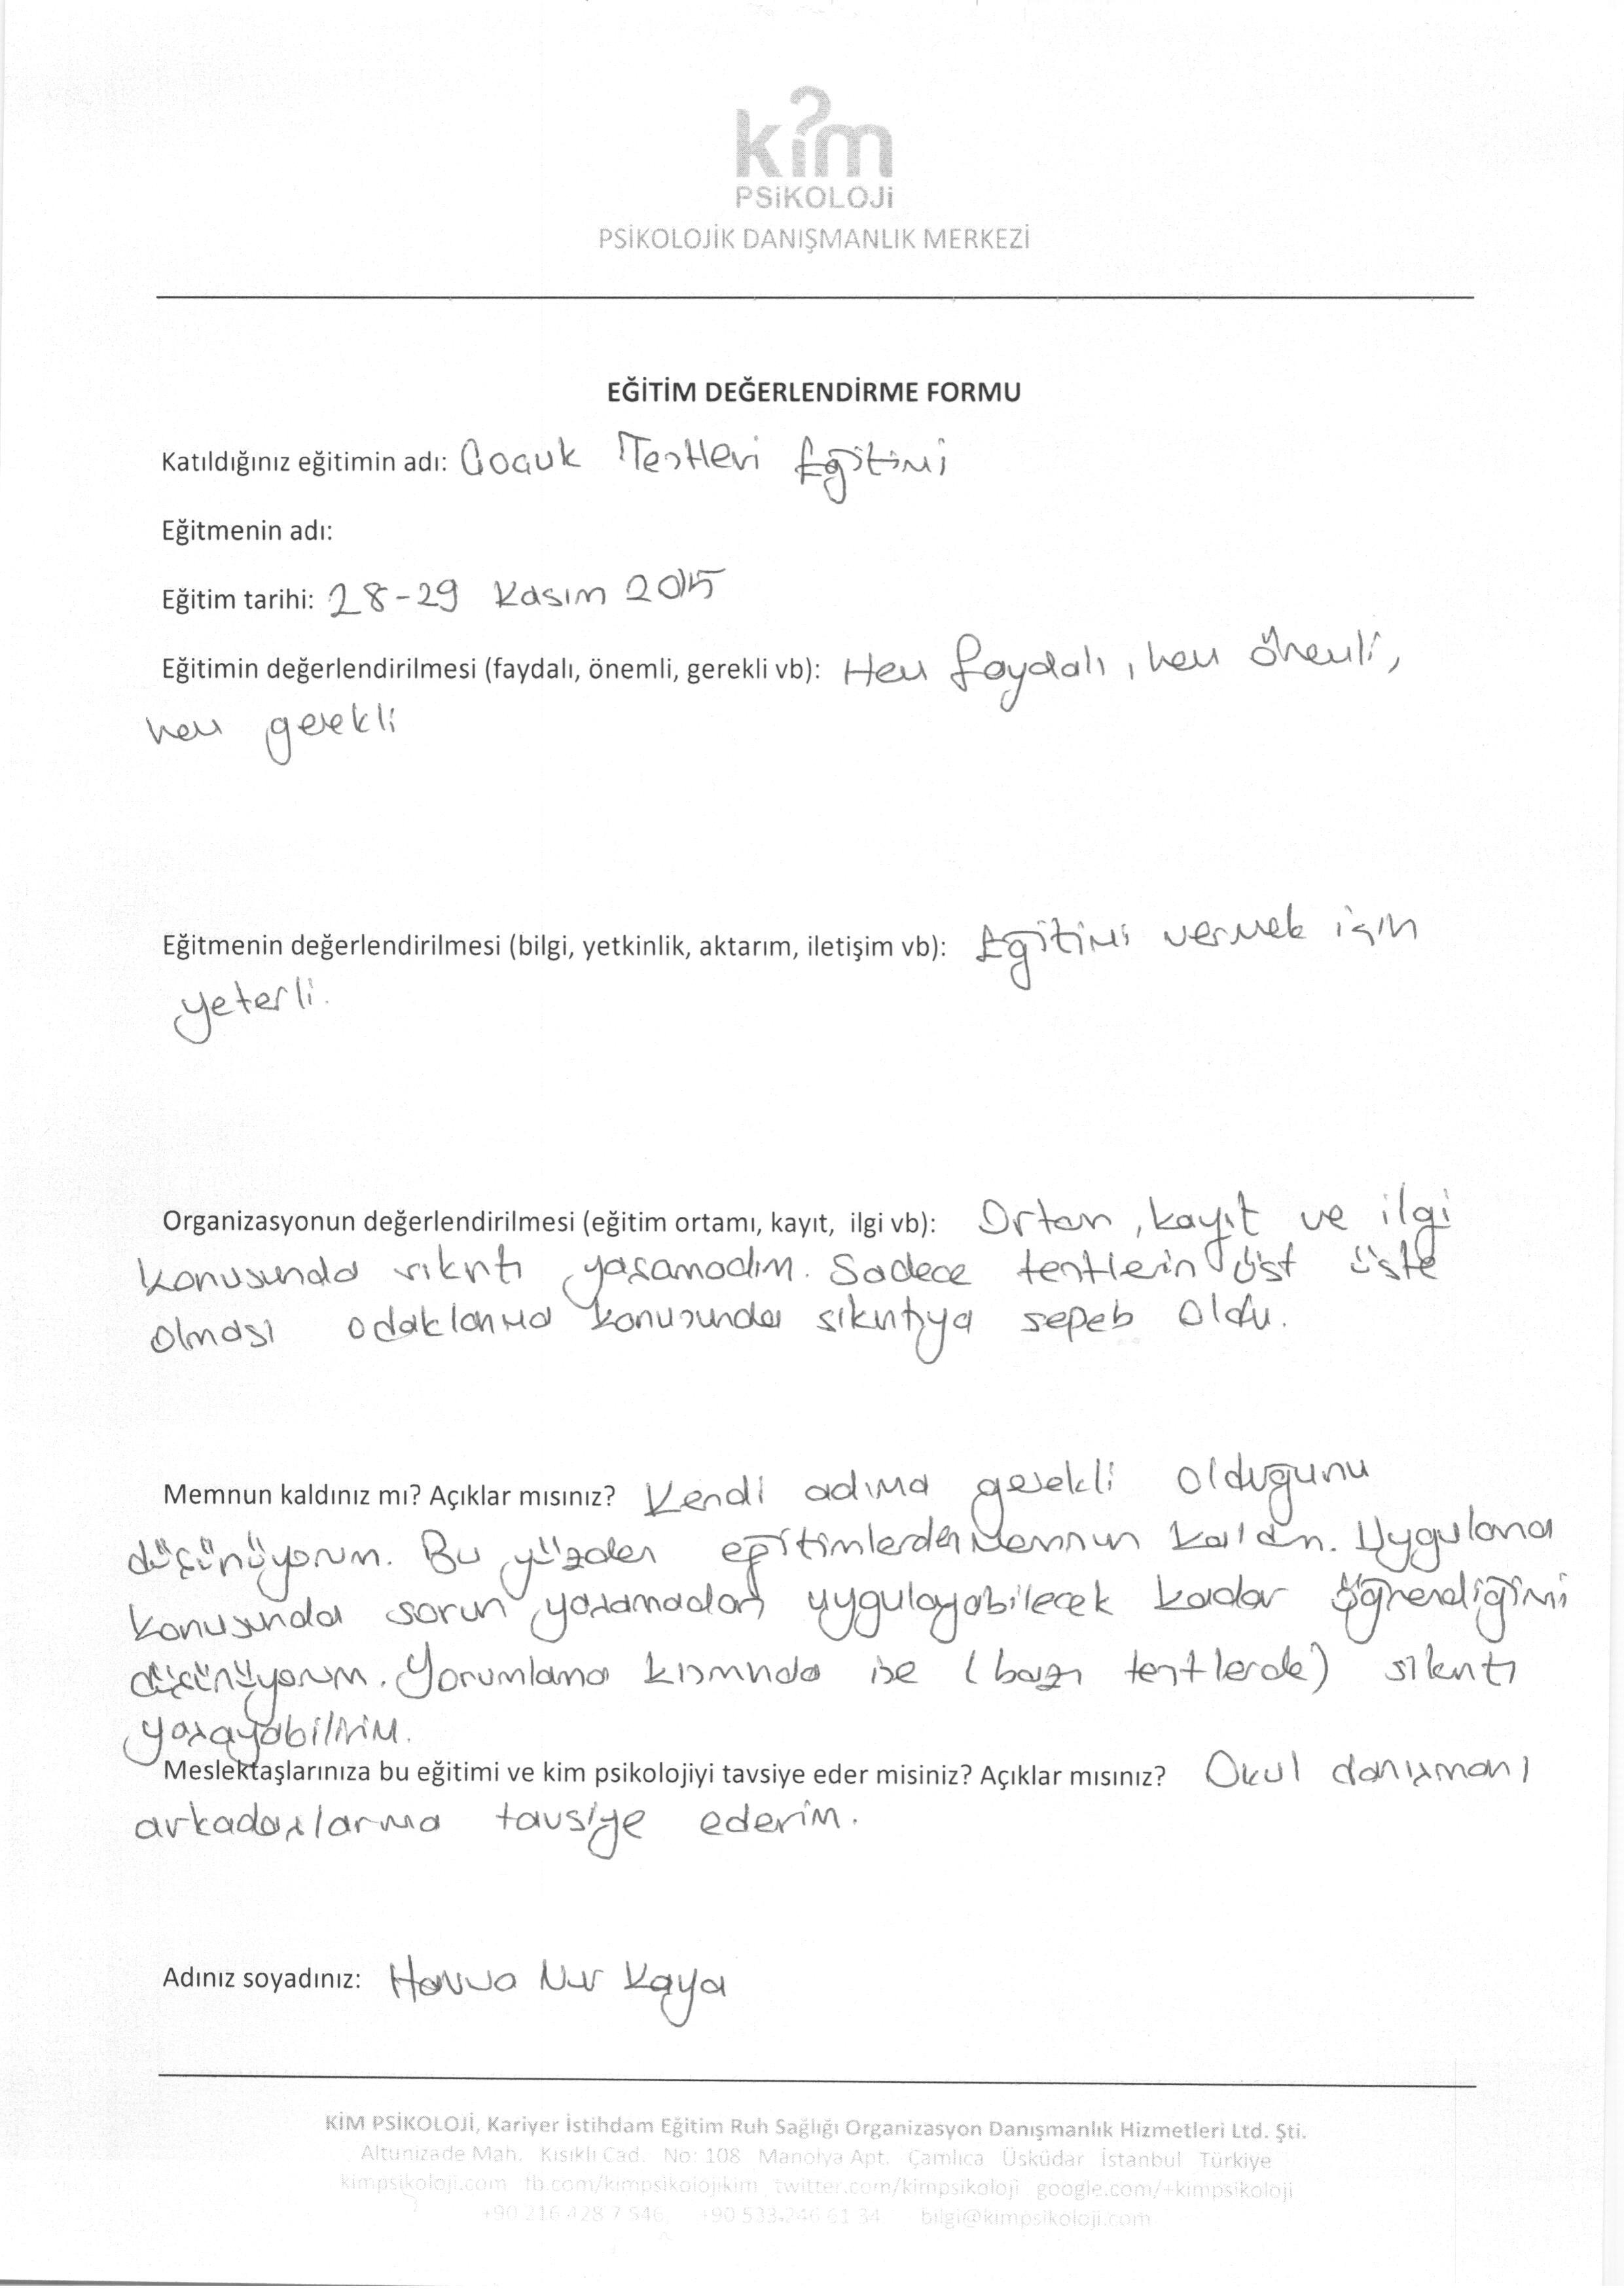 kim
PSİKOLOJİ
PSİKOLOJİK DANIŞMANLIK MERKEZİ
EĞİTİM DEĞERLENDİRME FORMU
Katıldığınız eğitimin adı: Çocuk Testleri Eğitimi
Eğitmenin adı:
Eğitim tarihi: 28-29 Kasım 2015
Eğitimin değerlendirilmesi (faydalı, önemli, gerekli vb): Hem faydalı, hem önemli,
hem gerekli
Eğitmenin değerlendirilmesi (bilgi, yetkinlik, aktarım, iletişim vb): Eğitimi vermek için
yeterli.
Organizasyonun değerlendirilmesi (eğitim ortamı, kayıt, ilgi vb): Ortam, kayıt ve ilgi
konusunda sıkıntı yaşamadım. Sadece testlerin üst üste
olması odaklanma konusunda sıkıntıya sepeb oldu.
Memnun kaldınız mı? Açıklar mısınız? Kendi adıma gerekli olduğunu
düşünüyorum. Bu yüzden eğitimlerden memnun kaldım. Uygulama
konusunda sorun yaşamadan uygulayabilecek kadar öğrendiğimi
düşünüyorum. Yorumlama kısmında ise (bazı testlerde) sıkıntı
yaşayabilirim.
Meslektaşlarınıza bu eğitimi ve kim psikolojiyi tavsiye eder misiniz? Açıklar mısınız? Okul danışmanı
arkadaşlarıma tavsiye ederim.
Adınız soyadınız: Havva Nur Kaya
KİM PSİKOLOJİ, Kariyer İstihdam Eğitim Ruh Sağlığı Organizasyon Danışmanlık Hizmetleri Ltd. Şti.
Altunizade Mah. Kısıklı Cad. No: 108 Manolya Apt. Çamlıca Üsküdar İstanbul Türkiye
kimpsikoloji.com fb.com/kimpsikolojikim twitter.com/kimpsikoloji google.com/+kimpsikoloji
+90 216 428 7 546 +90 533 246 61 34 bilgi@kimpsikoloji.com